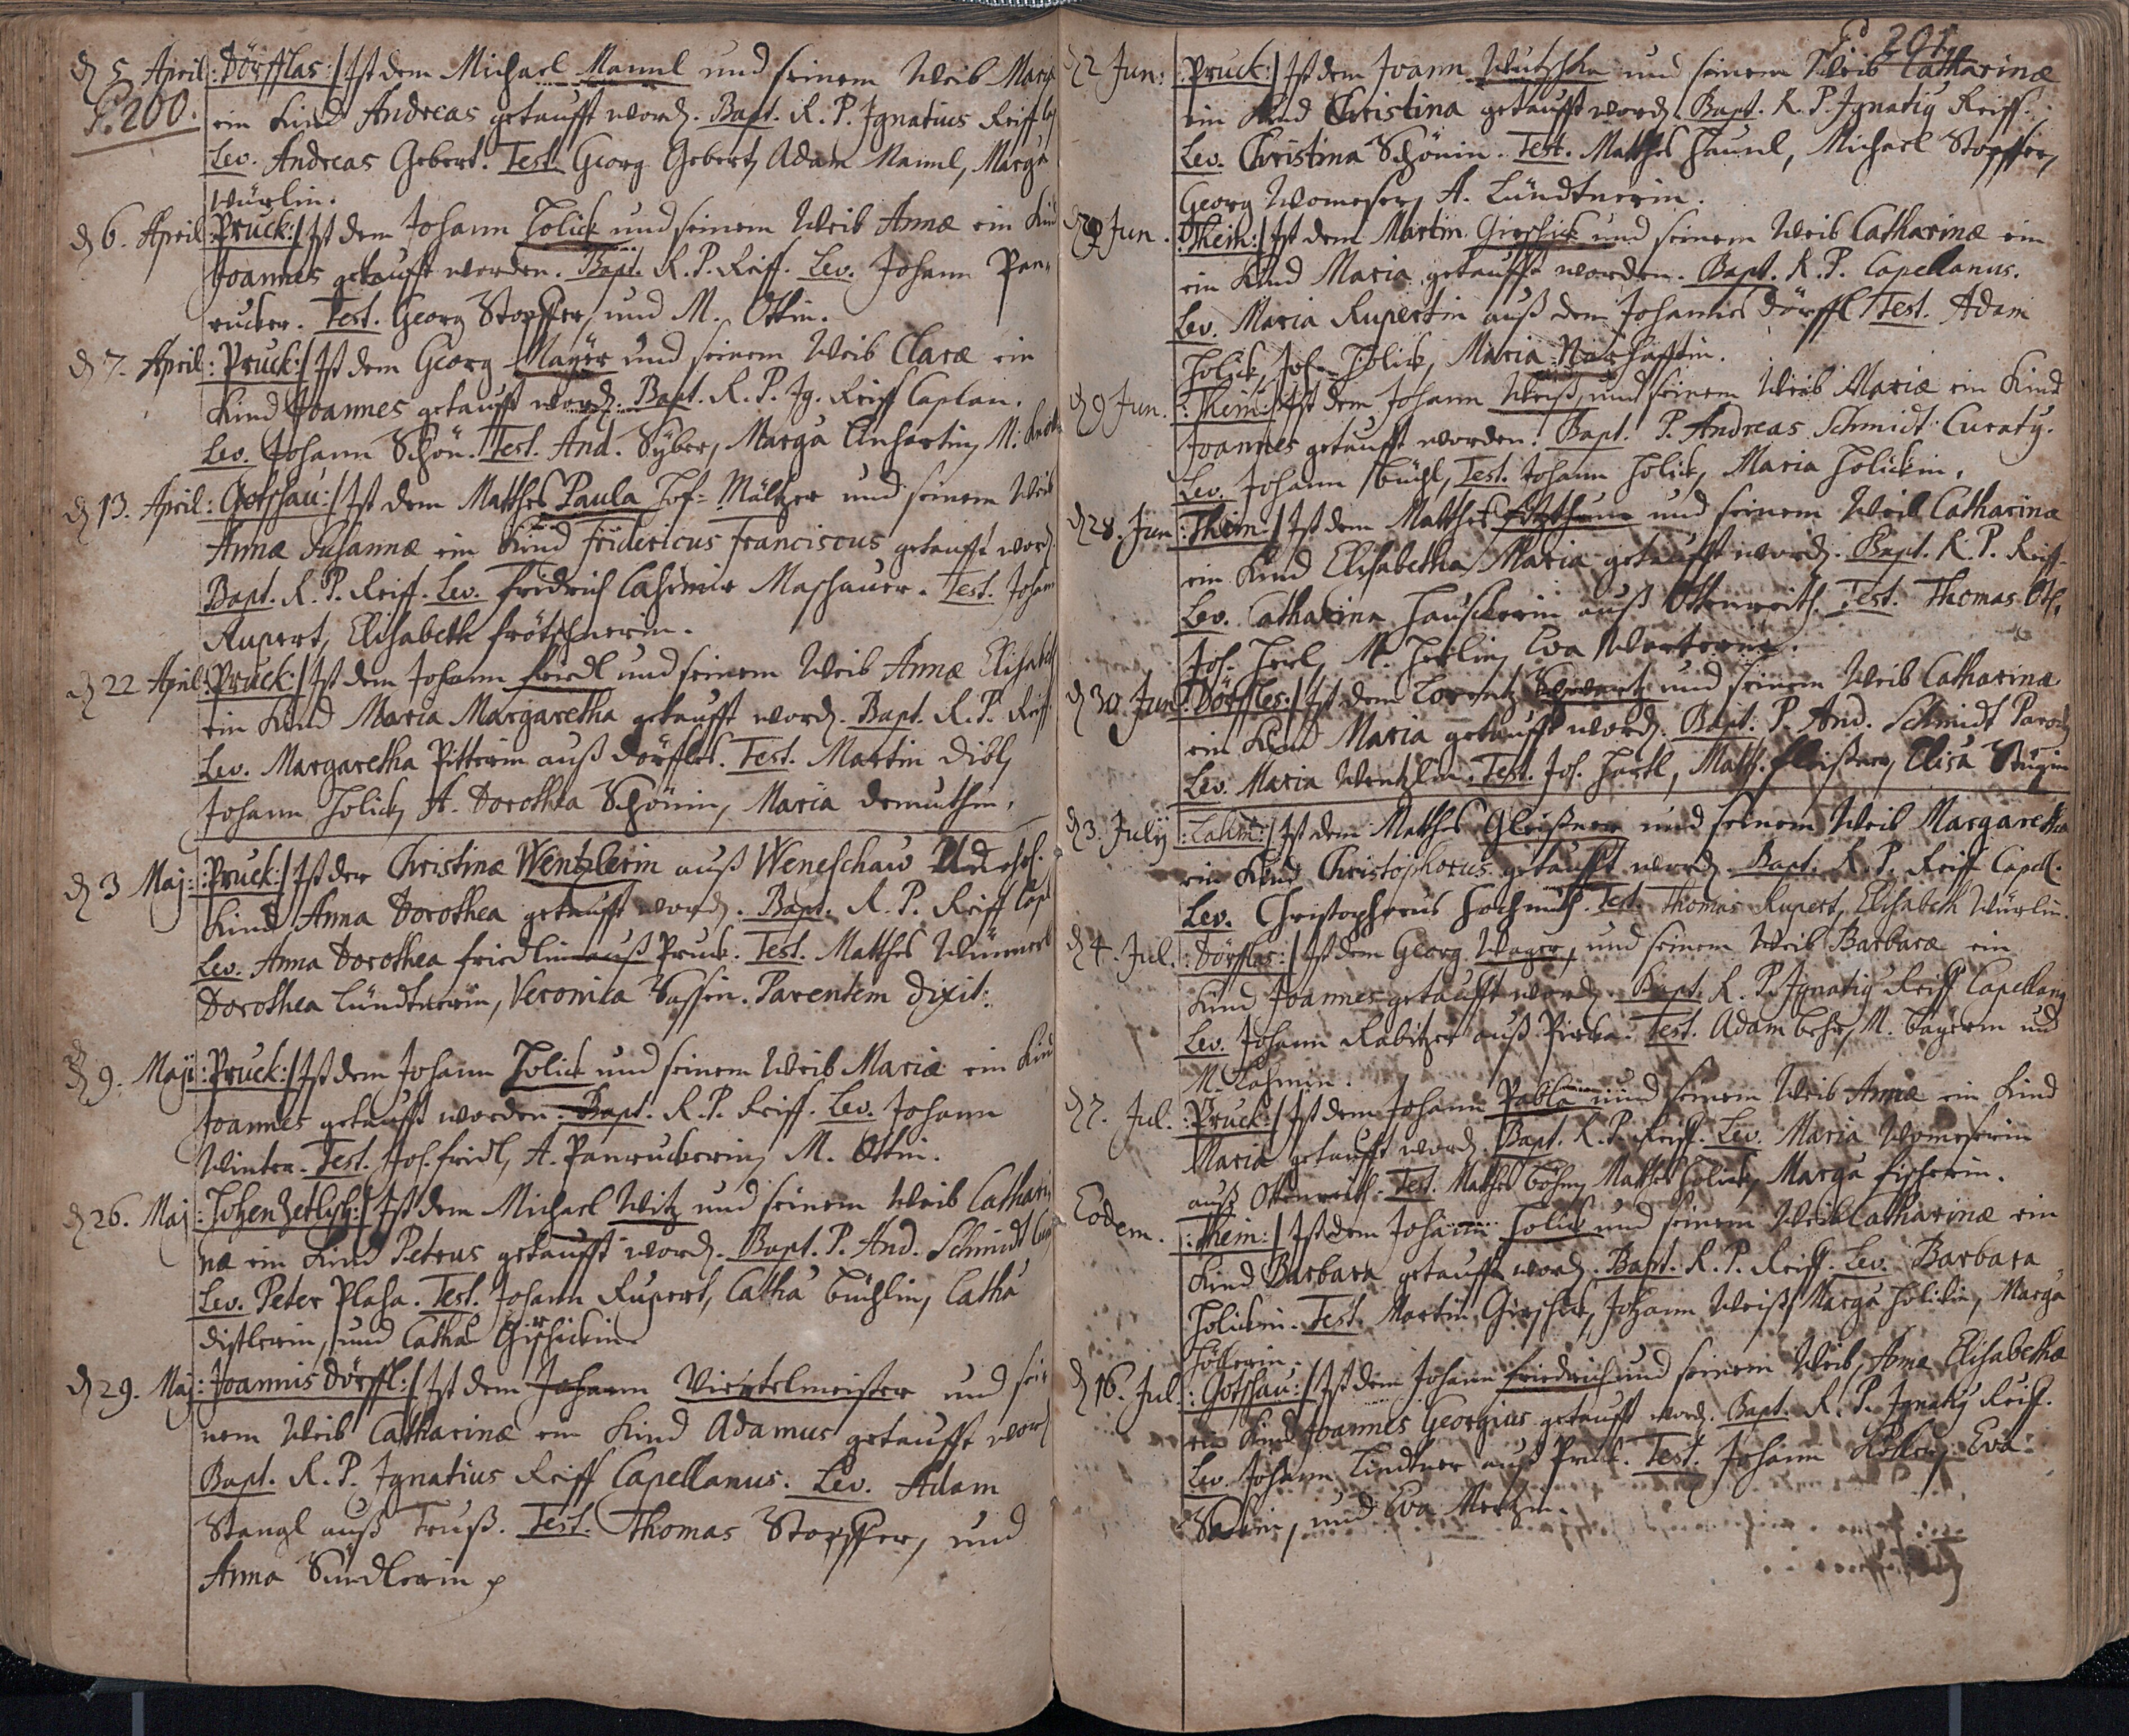 P. 200.
d 5 April :Dörfflas:/ Ist dem Michael Mannl und seinem Weib Maria
ein Kind Andreas getaufft word. Bapt. R. P. Ignatius Reiff
Lev. Andreas Gebert. Test. Georg Gebert, Adam Mannl, Marga
Würlin.
d 6. April :Pruck:/ Ist dem Johann Holick und seinem Weib Annæ ein Kind
Joannes getaufft worden. Bapt. R. P. Reiff. Lev. Johann Pan-
rucker. Test. Georg Stopffer, und M. Ottin.
d 7. April :Pruck:/ Ist dem Georg Mayer und seinem Weib Claræ ein
Kind Joannes getaufft word. Bapt. R. P. Ig. Reiff Caplan.
Lev. Johann Schön. Test. And. Syber, Marga Linhartin, M.
d 13. April :Gotschau:/ Ist dem Matthes Paula Hof-Mältzer und seinem Weib
Annæ Susannæ ein Kind Fridericus Franciscus getaufft word.
Bapt. R. P. Reiff. Lev. Fridrich Casimir Maschauer. Test. Johann
Rupert, Elisabeth Frötschnerin.
d 22 April :Pruck:/ Ist dem Johann Friedl und seinem Weib Annæ Elisabeth
ein Kind Maria Margaretha getaufft word. Bapt. R. P. Reiff
Lev. Margaretha Pitterin auß Dörffles. Test. Martin Dibl,
Johann Holick, A. Dorothea Schönin, Maria Demuthin.
d 3 Maj: :Pruck:/ Ist der Christinæ Wentzlerin auß Weneschaw Unehel.
Kind Anna Dorothea getaufft word. Bapt. R. P. Reiff Cap
Lev. Anna Dorothea Friedlin auß Pruck. Test. Matthes
Dorothea Lündtnerin, Veronica Sassin. Parentem dixit:
d 9. Maji :Pruck:/ Ist dem Johann Holick und seinem Weib Mariæ ein Kind
Joannes getaufft worden. Bapt. R. P. Reiff. Lev. Johann
Winter. Test. Joh. Fridl, A. Panruckerin, M. Ottin.
d 26. Maj :Hohenzetlisch:/ Ist dem Michael Witz und seinem Weib Cathari-
næ ein Kind Petrus getaufft word. Bapt. P. And. Schmidt Cur
Lev. Peter Plaha. Test. Johann Rupert, Catha Büchlin, Catha
Distlerin, und Catha Girschickin.
d 29. Maj :Joannis Dörffl:/ Ist dem Johann Viertelmeister und sei-
nem Weib Catharinæ ein Kind Adamus getaufft word
Bapt. R. P. Ignatius Reiff Capellanus. Lev. Adam
Stangl auß Truß. Test. Thomas Stopffer, und
Anna Sündlerin
P. 201.
d 2 Jun: :Pruck:/ Ist dem Joann Wutschka und seinem Weib Catharinæ
ein Kind Christina getaufft word. Bapt. R. P. Ignatiy Reiff.
Lev. Christina Schönin. Test. Matthes Haunl, Michael Stopffer,
Georg Womeser, A. Lündtnerin.
Jun. :Thein:/ Ist dem Martin Girschick und seinem Weib Catharinæ ein
ein Kind Maria getaufft worden. Bapt. R. P. Capellanus.
Lev. Maria Rupertin auß dem Johannes Dörffl Test. Adam
Holick, Joh. Holick, Maria
d 9 Jun. :Thein:/ Ist dem Johann Weiß, und seinem Weib Mariæ ein Kind
Joannes getaufft worden. Bapt. P. Andreas Schmidt Curaty.
Lev. Johann Büchl, Test. Johann Holick, Maria Holickin.
d 28. Jun :Thein:/ Ist dem Matthes und seinem Weib Catharinæ
ein Kind Elisabetha Maria getaufft word. Bapt. R. P. Reiff.
Lev. Catharina Hauserin auß Ottenreith. Test. Thomas Ott,
Joh. Heil, M. Heilin, Eva
d 30 Jun :Dörffles:/ Ist dem Lorentz Schwartz und seinem Weib Catharinæ
ein Kind Maria getaufft word. Bapt. P. And. Schmidt Paroch
Lev. Maria Wentzlin. Test. Joh. Härtl, Matth. Gleißner, Elisa
d 3. July :Lahm:/ Ist dem Matthes Gleißner und seinem Weib Margaretha
ein Kind Christophorus getaufft word. Bapt. R. P. Reiff Capell.
Lev. Christophorus Hochmuth. Test. Thomas Rupert, Elisabeth Würlin.
d 4. Jul. :Dörfflas:/ Ist dem Georg Wager, und seinem Weib Barbaræ ein
Kind Joannes getaufft word. Bapt. R. P. Ignatiy Reiff Capellany
Lev. Johann Rabitzer auß Pirka. Test. Adam Behr, M. Bayerin und
M. Lahmin.
d 7. Jul. :Pruck:/ Ist dem Johann Pabla und seinem Weib Annæ ein Kind
Maria getaufft word. Bapt. R. P. Reiff. Lev. Maria Womeserin
auß Ottenreith. Test. Matthes Böhm, Matthes Holick, Marga Fischerin.
Eodem. :Thein:/ Ist dem Johann Holick und seinem Weib Catharinæ ein
Kind Barbara getaufft word. Bapt. R. P. Reiff. Lev. Barbara
Holickin. Test. Martin Girschick, Johann Weiß, Marga Holickin, Marga
Höllerin.
d 16. Jul. :Gotschau:/ Ist dem Johann Friedrich und seinem Weib Annæ Elisabethæ
ein Kind Joannes Georgius getaufft word. Bapt. R. P. Ignatiy Reiff.
Lev. Johann Lindtner auß Pruck. Test. Johann Eva
und Eva